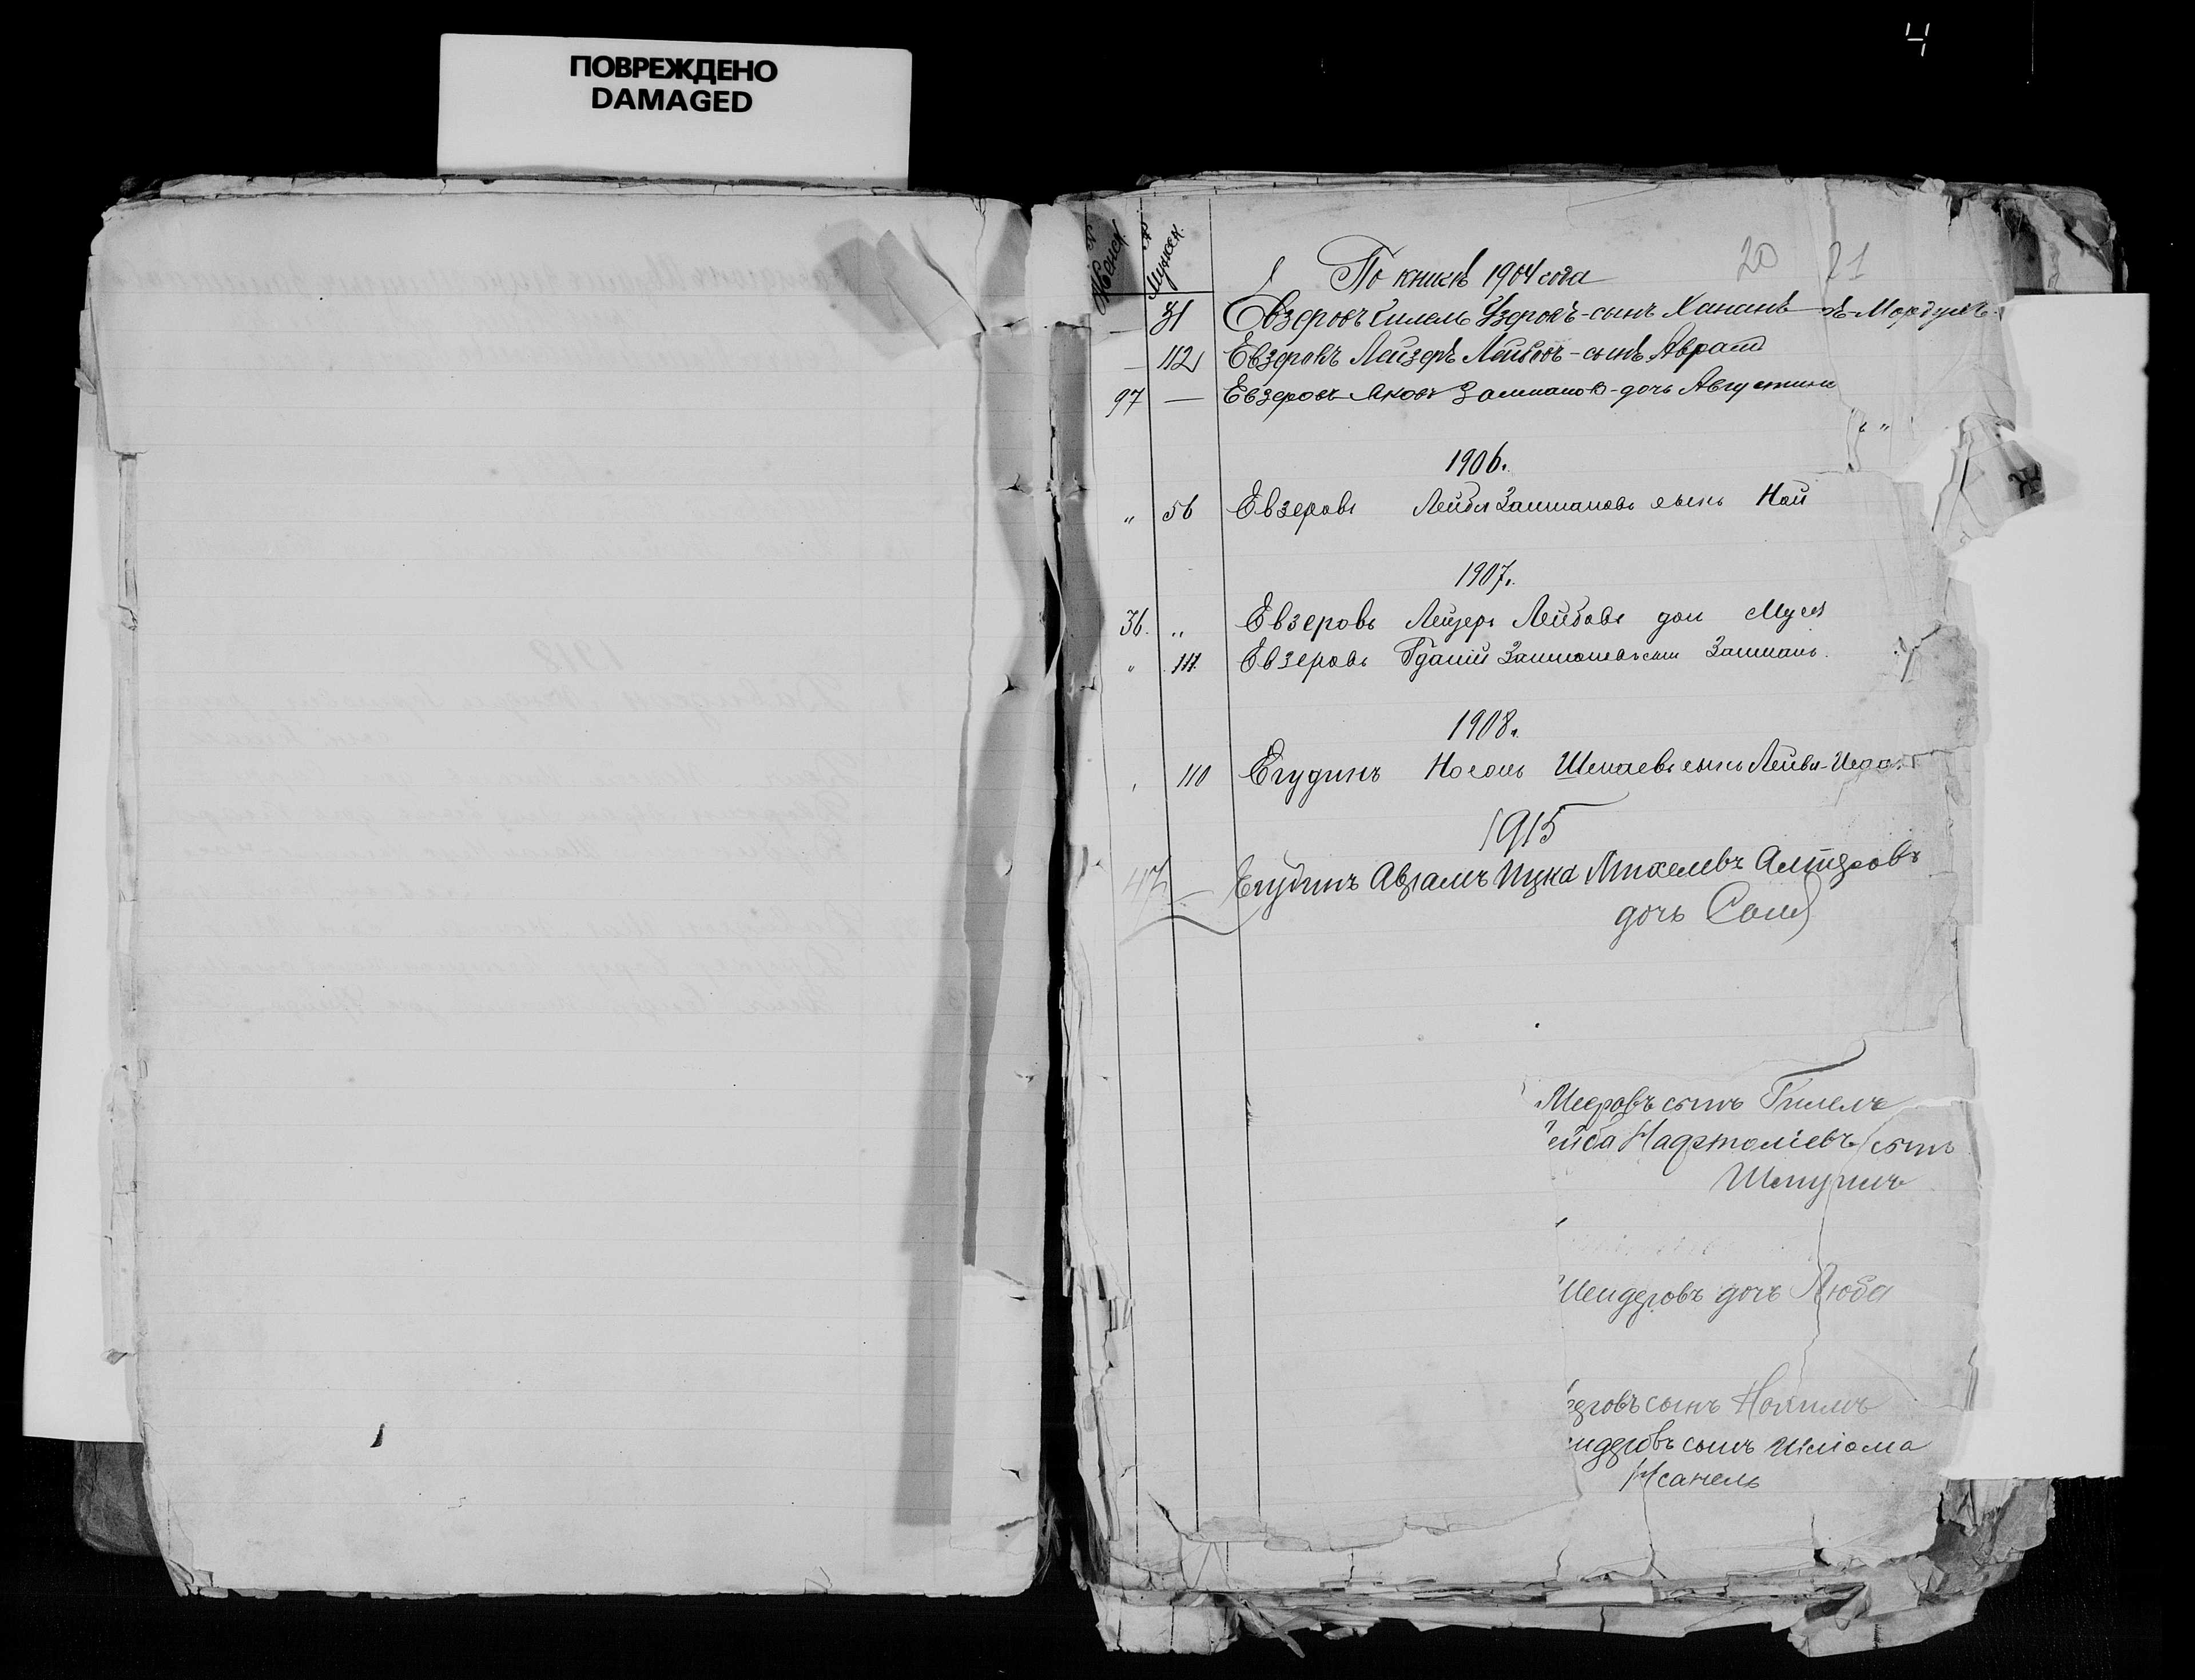 ПОВРЕЖДЕНО
DAMAGED
Ч
№ Женск.
№ Мужск.
20 21
По книгѣ 1904 года
— 31 Евзеровъ Гилель Узеровъ-сынъ Хананъ-Мордухъ
— 112 Евзеровъ Лейзеръ Лейбовъ-сынъ Авраам
97 — Евзеровъ Яковъ Залмановъ-дочь Августина
1906.
" 56 Евзеровъ Лейба Залмановъ сынъ Ной
1907.
36. " Евзеровъ Лейзеръ Лейбовъ дочь Муся
" 111 Евзеровъ Залмановъ сынъ Залманъ.
1908.
110 Егудинъ Носонъ Шмаевъ сынъ Лейба-
1915
47 — Егудинъ Авраамъ Ицка Михелевъ Алтеровъ
дочь Соня
Мееровъ сынъ Гилель
ейба Нафтоліевъ сынъ
Шмуилъ
Шендеровъ дочь Люба
еровъ сынъ Нохимъ
ндеровъ сынъ Шлома
Исанель